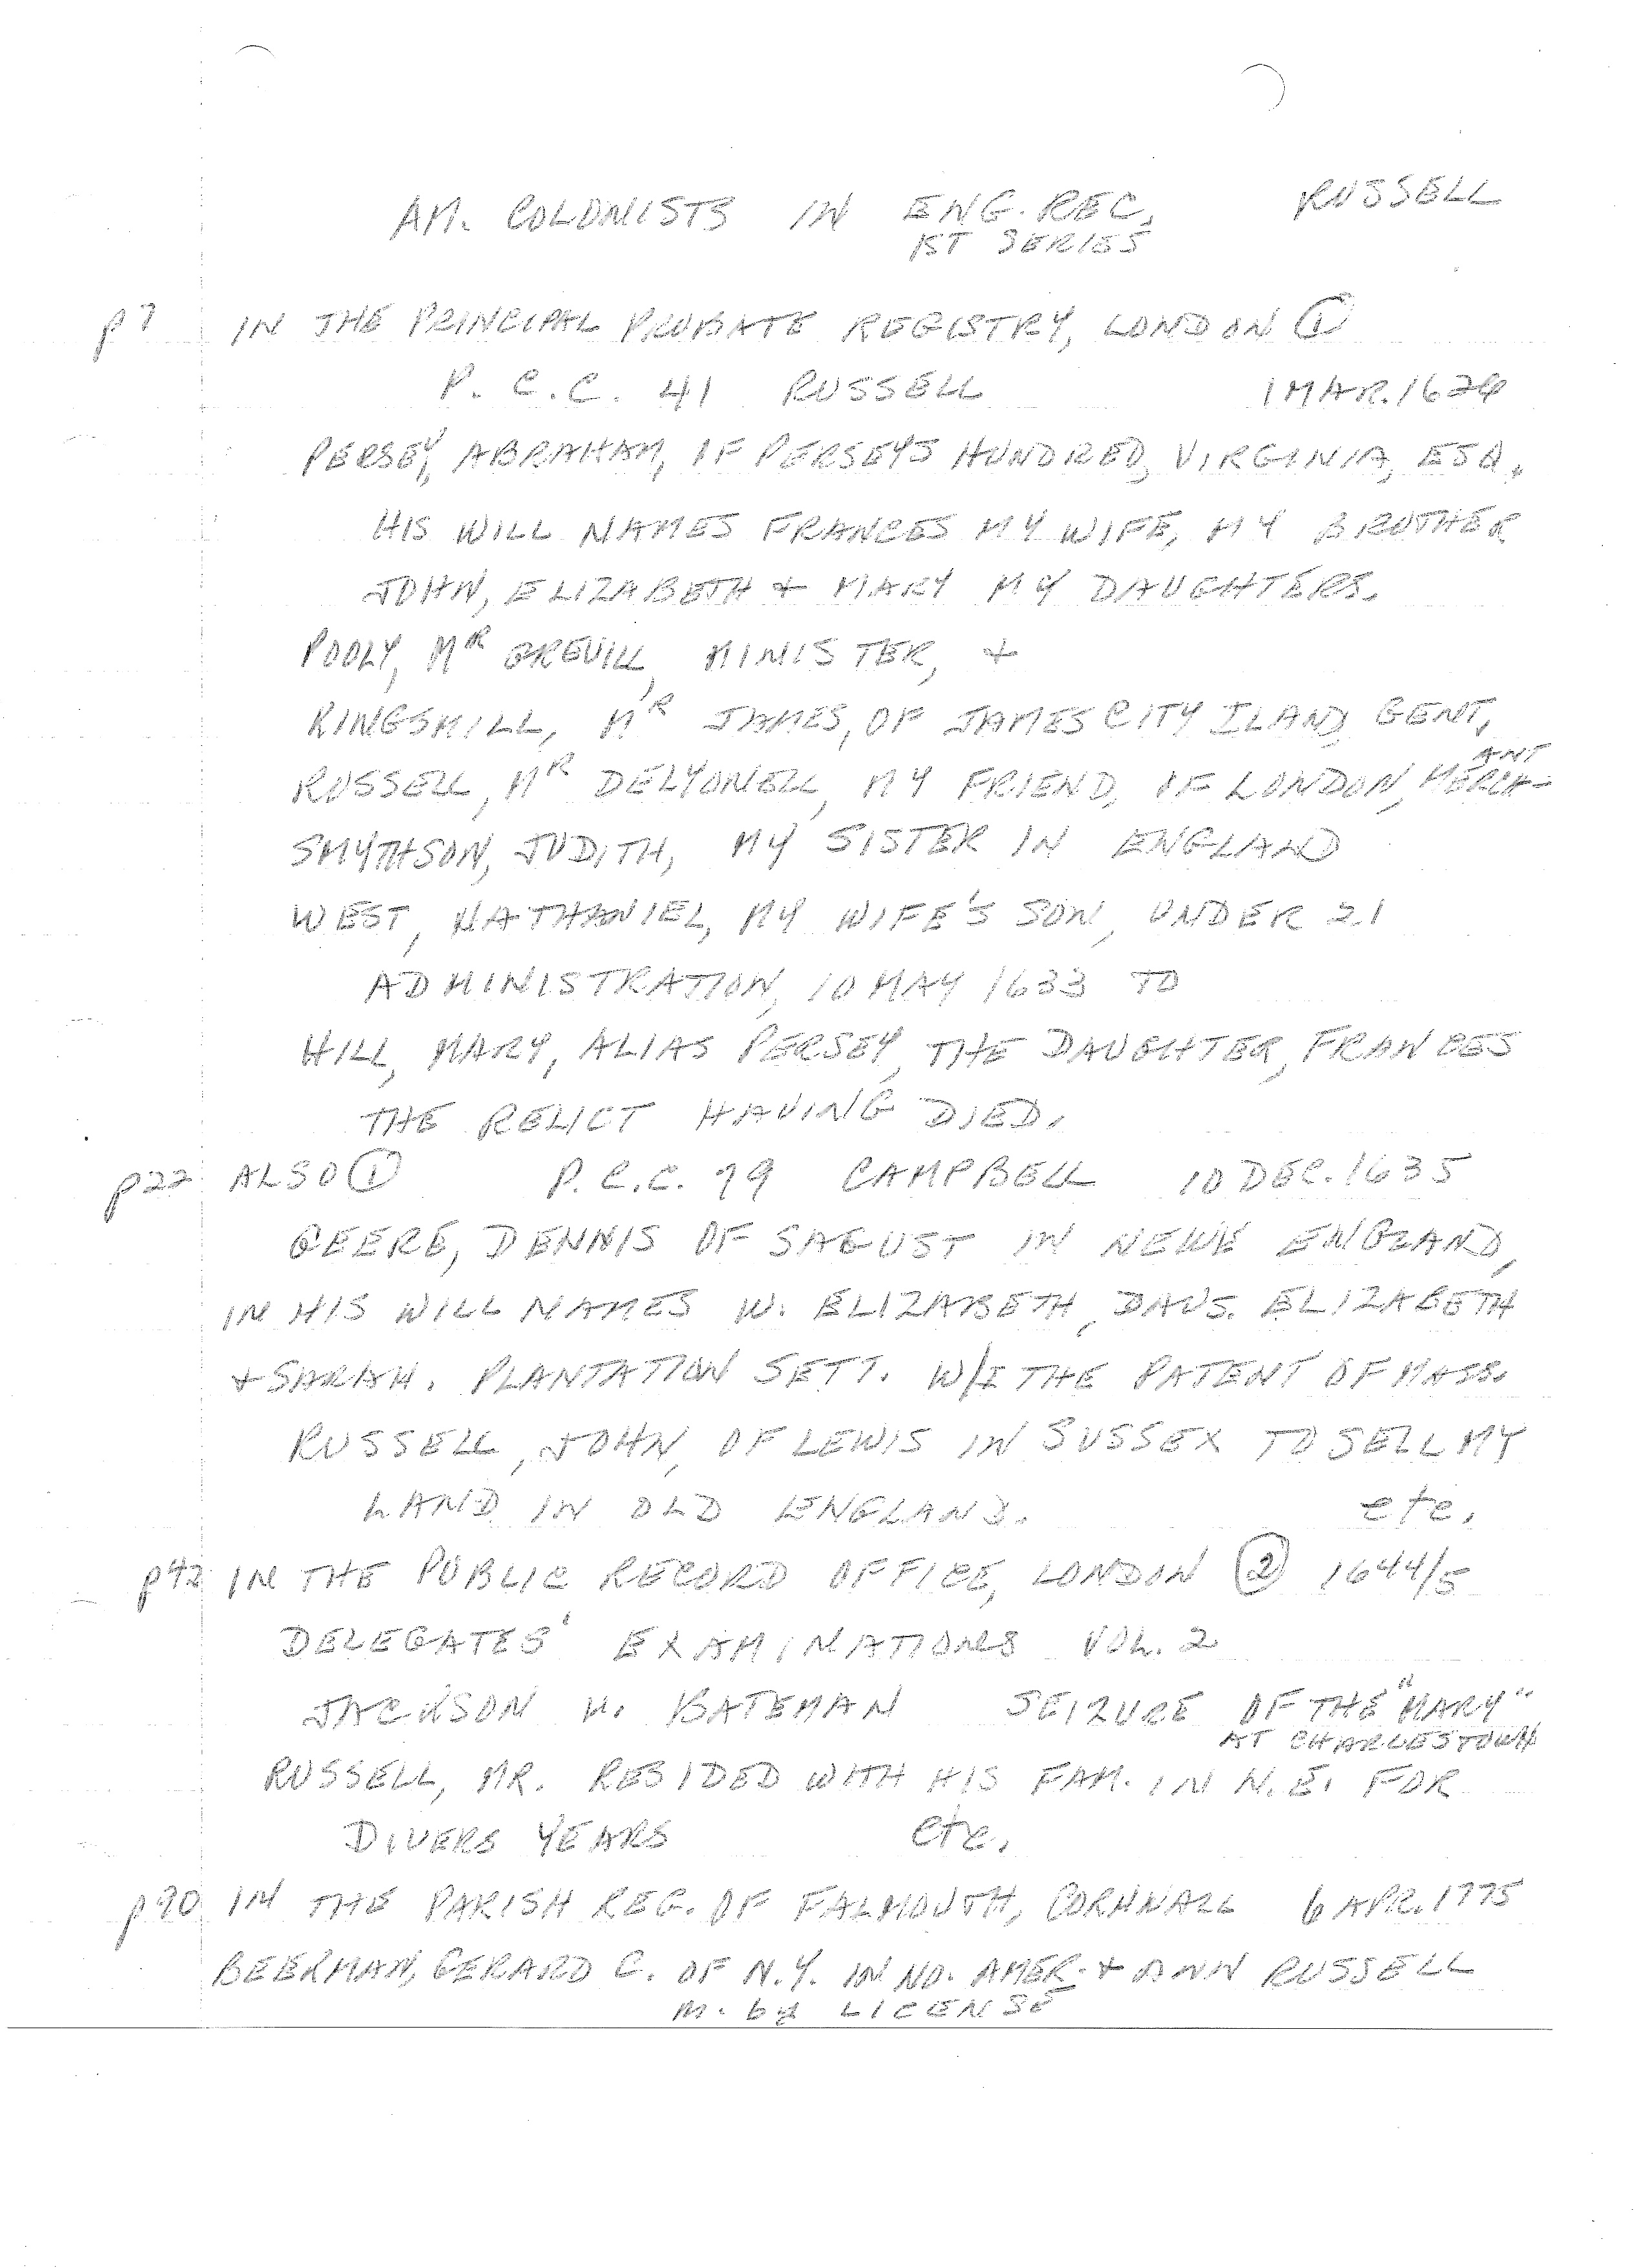 AM. COLONISTS IN ENG. REC. RUSSELL
1ST SERIES
p7 IN THE PRINCIPAL PROBATE REGISTRY, LONDON ①
P. C. C. 41 RUSSELL 1 MAR. 1626
PERSEY, ABRAHAM, OF PERSEYS HUNDRED, VIRGINIA, ESQ.
HIS WILL NAMES FRANCES MY WIFE, MY BROTHER
JOHN, ELIZABETH + MARY MY DAUGHTERS.
POOLY, MR GREVILL, MINISTER, +
RINGSMILL, MR JAMES, OF JAMES CITY ILAND, GENT,
RUSSELL, MR DELYONELL, MY FRIEND, OF LONDON, MERCHANT
SMYTHSON, JUDITH, MY SISTER IN ENGLAND
WEST, NATHANIEL, MY WIFE'S SON, UNDER 21
ADMINISTRATION, 10 MAY 1633 TO
HILL, MARY, ALIAS PERSEY, THE DAUGHTER, FRANCES
THE RELICT HAVING DIED.
p22 ALSO ① P. C. C. 79 CAMPBELL 10 DEC. 1635
GEERE, DENNIS OF SAGUST IN NEWE ENGLAND,
IN HIS WILL NAMES W. ELIZABETH, DAUS. ELIZABETH
+ SARAH. PLANTATION SETT. W/I THE PATENT OF MASS.
RUSSELL, JOHN, OF LEWIS IN SUSSEX TO SELL MY
LAND IN OLD ENGLAND. etc.
p42 IN THE PUBLIC RECORD OFFICE, LONDON ② 1644/5
DELEGATES' EXAMINATIONS VOL. 2
JACKSON V. BATEMAN SEIZURE OF THE "MARY"
AT CHARLESTOWN
RUSSELL, MR. RESIDED WITH HIS FAM. IN N.E. FOR
DIVERS YEARS etc.
p90 IN THE PARISH REG. OF FALMOUTH, CORNWALL 6 APR. 1775
BEERMAN, GERARD C. OF N.Y. IN NO. AMER. + ANN RUSSELL
m. by LICENSE